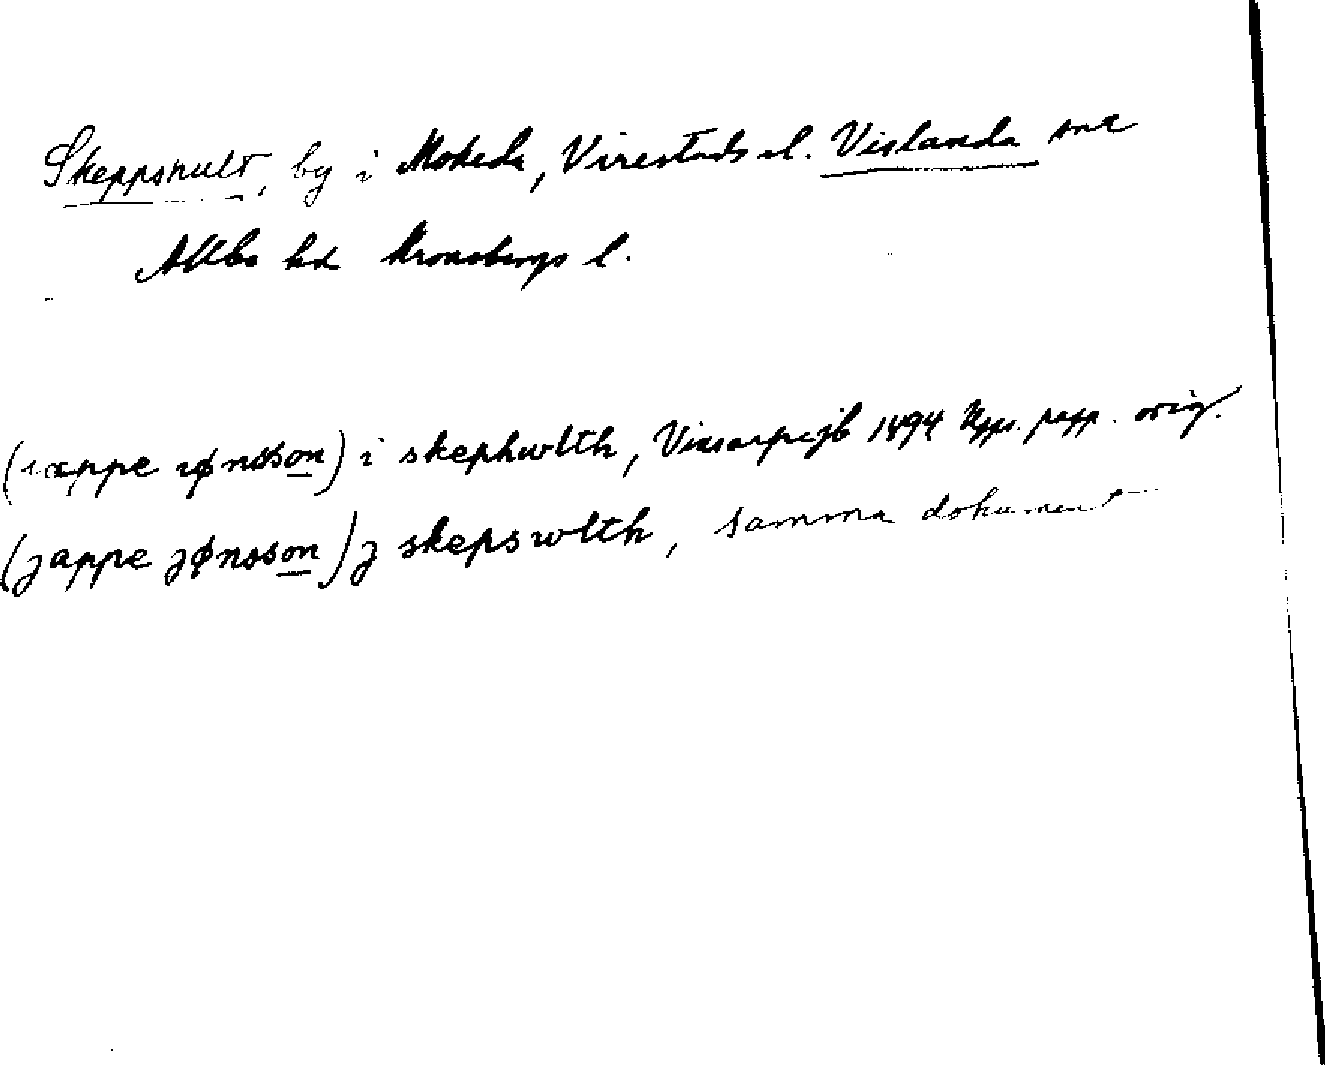 Skeppshult, by i Moheda, Virestads el. Vislanda snr
Allbo hd Kronobergs l.
(iæppe iønsson) i skephwlth, 1494 Upps. papp. orig.
(jappe jønsson) j skepswlth, samma dokument